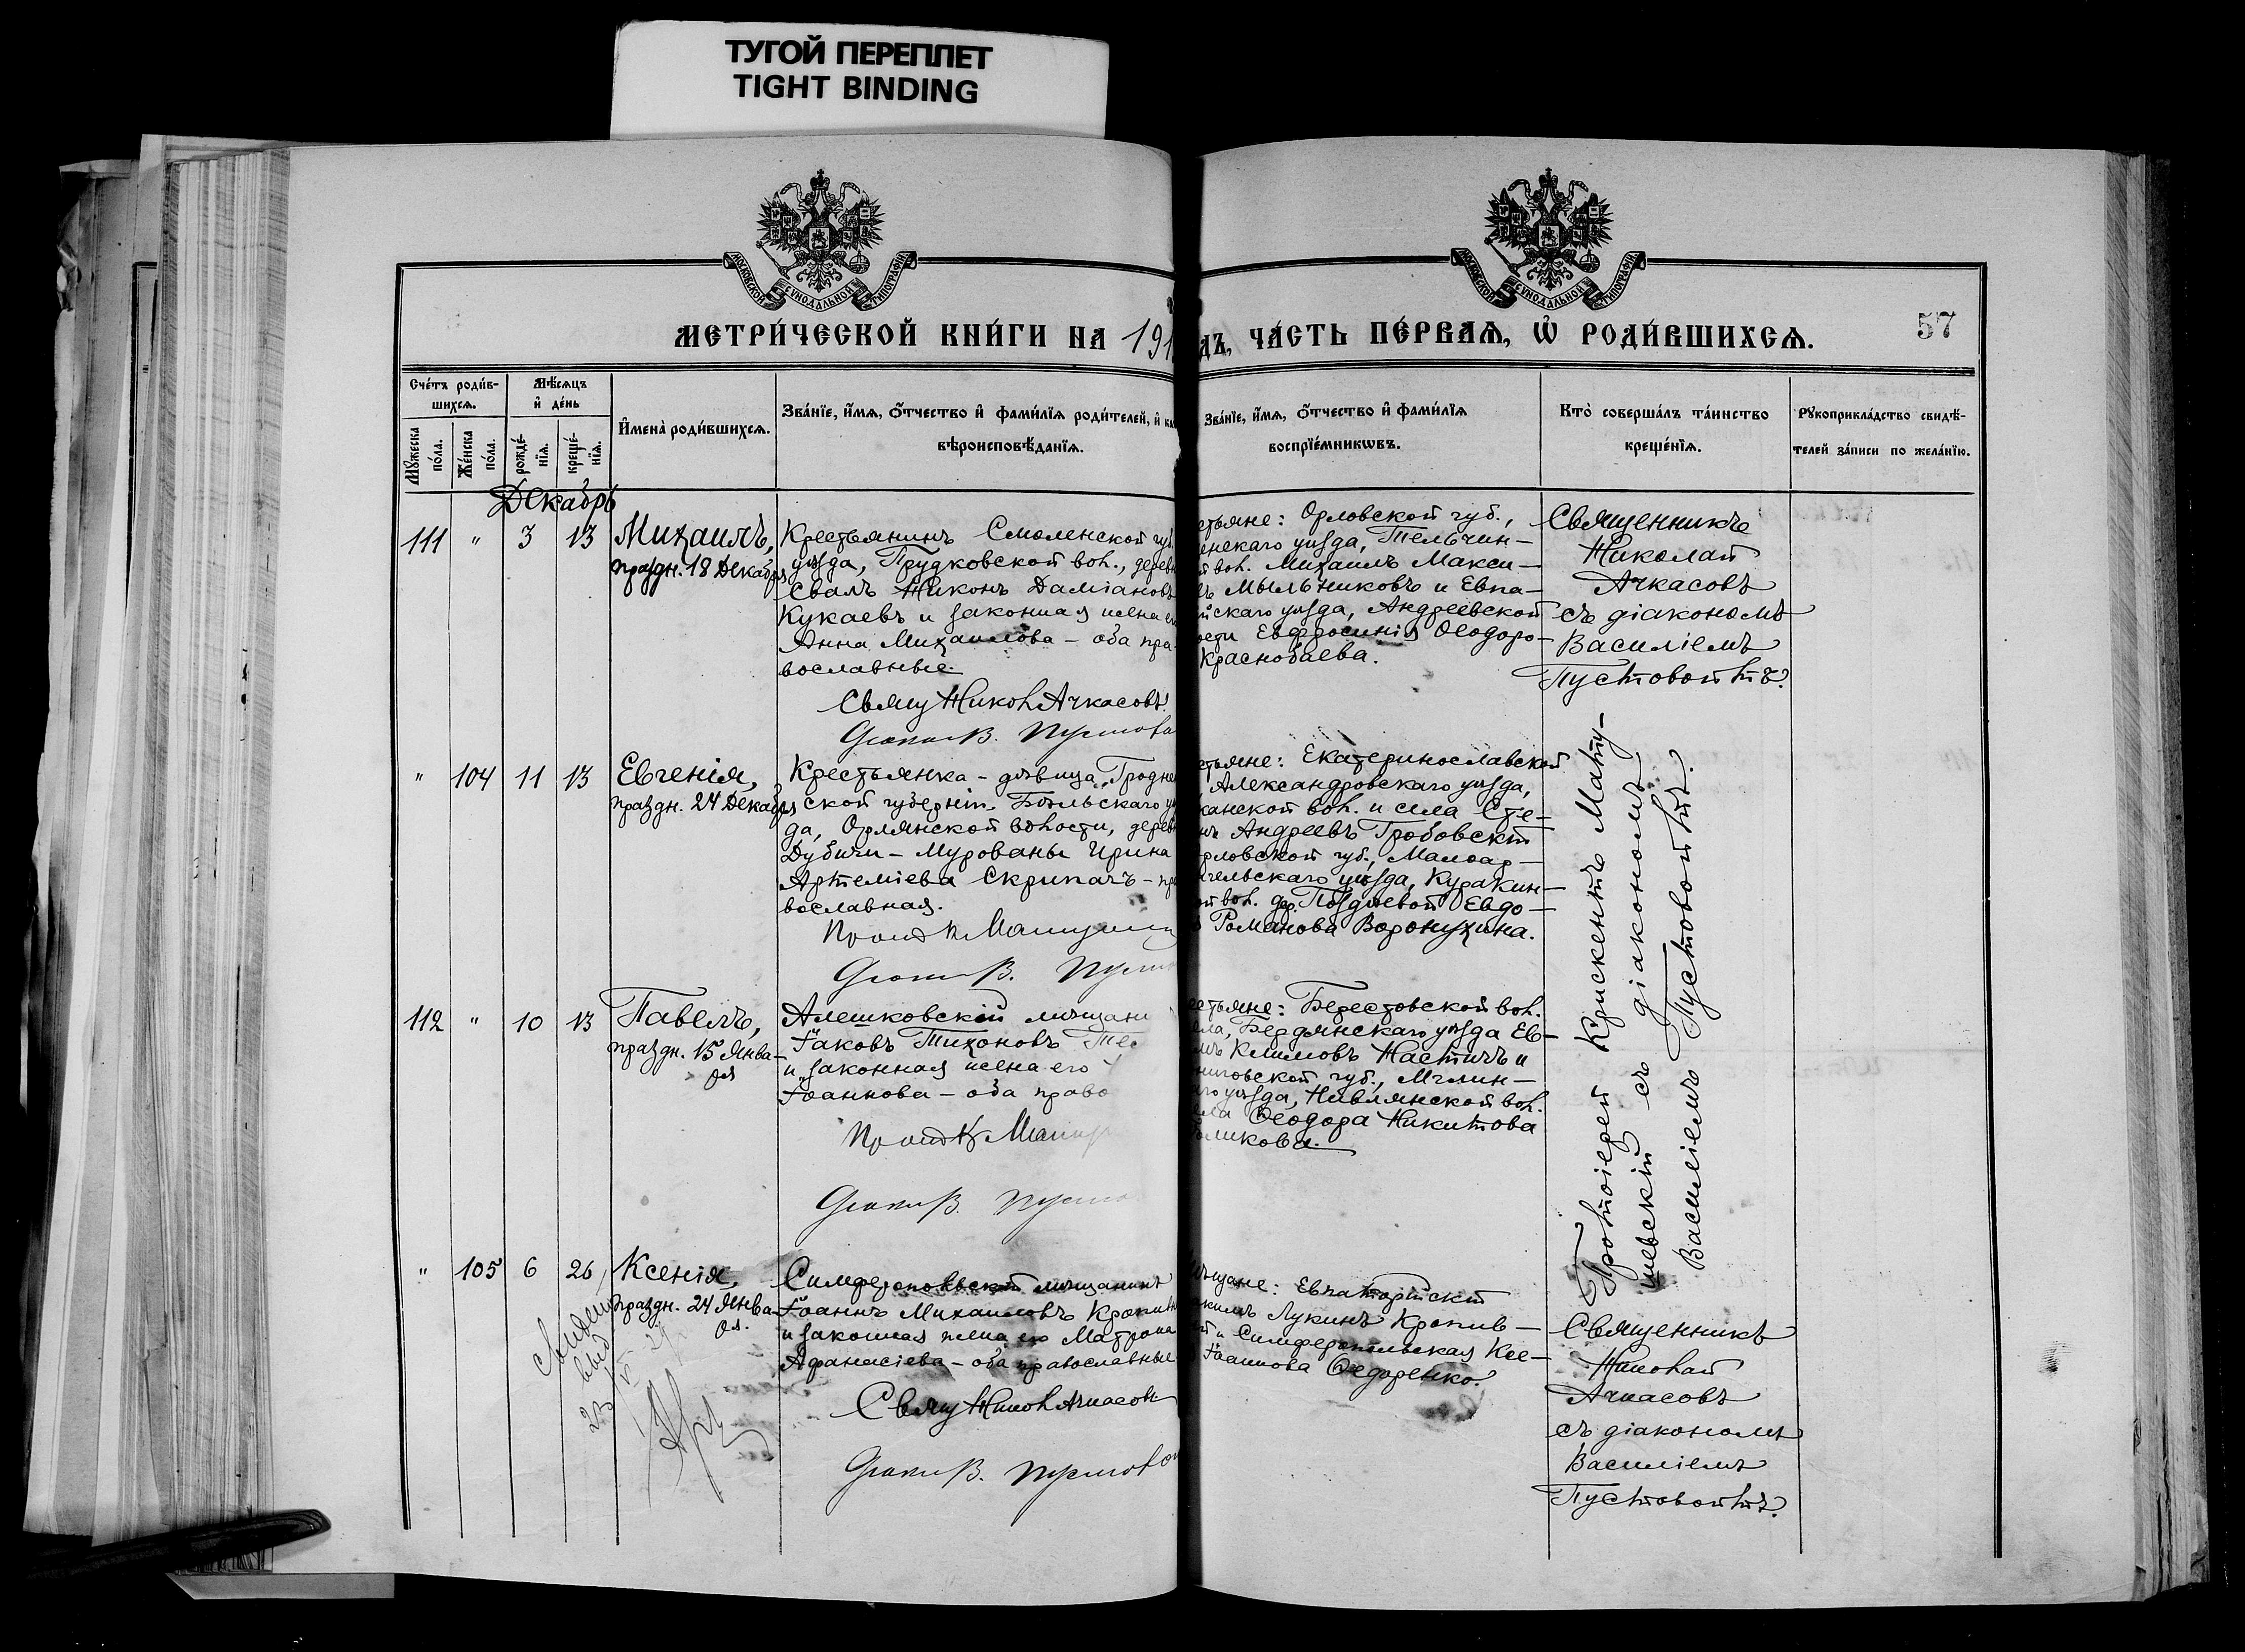 ТУГОЙ ПЕРЕПЛЕТ
TIGHT BINDING
МОСКОВСКОЙ СѴНОДАЛЬНОЙ ТИПОГРАФІИ
МОСКОВСКОЙ СѴНОДАЛЬНОЙ ТИПОГРАФІИ
МЕТРИ́ЧЕСКОЙ КНИ́ГИ НА 191
дъ, ЧА́СТЬ ПЕ́РВАѦ, Ѡ҆ РОДИ́ВШИХСѦ.
57
Сче́тъ роди́в-
шихсѧ.
Мѣ́сѧцъ
и҆ де́нь
Мꙋ́жеска
по́ла.
Же́нска
по́ла.
рожде́-
нїѧ.
креще́-
нїѧ.
И҆мена̀ роди́вшихсѧ.
Зва́нїе, и҆́мѧ, ѻ҆́тчество и҆ фами́лїѧ роди́телей, и҆ ка
вѣроисповѣ́данїѧ.
Зва́нїе, и҆́мѧ, ѻ҆́тчество и҆ фами́лїѧ
воспрїе́мникѡвъ.
Кто̀ соверша́лъ та́инство
креще́нїѧ.
Рꙋкоприкла́дство свидѣ́-
телей за́писи по жела́нїю.
Декабрь
111 " 3 13
Михаилъ,
праздн. 18 Декабря
Крестьянинъ Смоленской губ.
уѣзда, Прудковской вол., дерев
Сваль Никонъ Даміановъ
Кукаевъ и законная жена е
Анна Михаилова – оба пра-
вославные.
Свящ Никол Ачкасовъ
Діакон В. Пустово
стьяне: Орловской губ.,
енскаго уѣзда, Тельчин-
й вол. Михаилъ Макси-
въ Мыльниковъ и Евпа-
йскаго уѣзда, Андреевской
ости Евфросинія Ѳеодоро-
Краснобаева.
Священникъ
Николай
Ачкасовъ
съ діакономъ
Василіемъ
Пустовойтъ.
" 104 11 13
Евгенія,
праздн. 24 Декабря
Крестьянка – дѣвица, Гродне
ской губерніи, Бѣльскаго уѣ
да, Орлянской волости, дерев
Дубичи – Мурованы Ирина
Артеміева Скрипачъ – пра
вославная.
Діакон В. Пусто
стьяне: Екатеринославской
Александровскаго уѣзда,
канской вол. и села Сте-
нъ Андреевъ Гробовскій
рловской губ., Малоар-
гельскаго уѣзда, Куракин-
ой вол. дер. Поздяевой Евдо-
Романова Воронухина.
Протоіерей Крискентъ Мату-
шевскій съ діакономъ
Василіемъ Пустовойтъ.
112 " 10 13
Павелъ,
праздн. 15 Янва-
ря
Алешковскій мѣщани
Іаковъ Тихоновъ Те
и законная жена его
Іоаннова – оба право
Діакон В. Пусто
естьяне: Берестовской вол.
ела, Бердянскаго уѣзда Ев-
мъ Климовъ Настичъ и
ниговской губ., Мглин-
аго уѣзда, Нивлянской вол.
ела Ѳеодора Никитова
оликова.
" 105 6 26
Ксенія,
праздн. 24 Янва-
ря.
Симферопольскій мѣщанинъ
Іоаннъ Михаиловъ Кропив
и законная жена его Матрона
Афанасіева – оба православные
Свящ Никол Ачкасовъ
Діакон В. Пустовой
ѣщане: Евпаторійскій
кимъ Лукинъ Кропив-
й и Симферопольская Ксе-
Іоаннова Ѳедоренко.
Священникъ
Николай
Ачкасовъ
съ діакономъ
Василіемъ
Пустовойтъ.